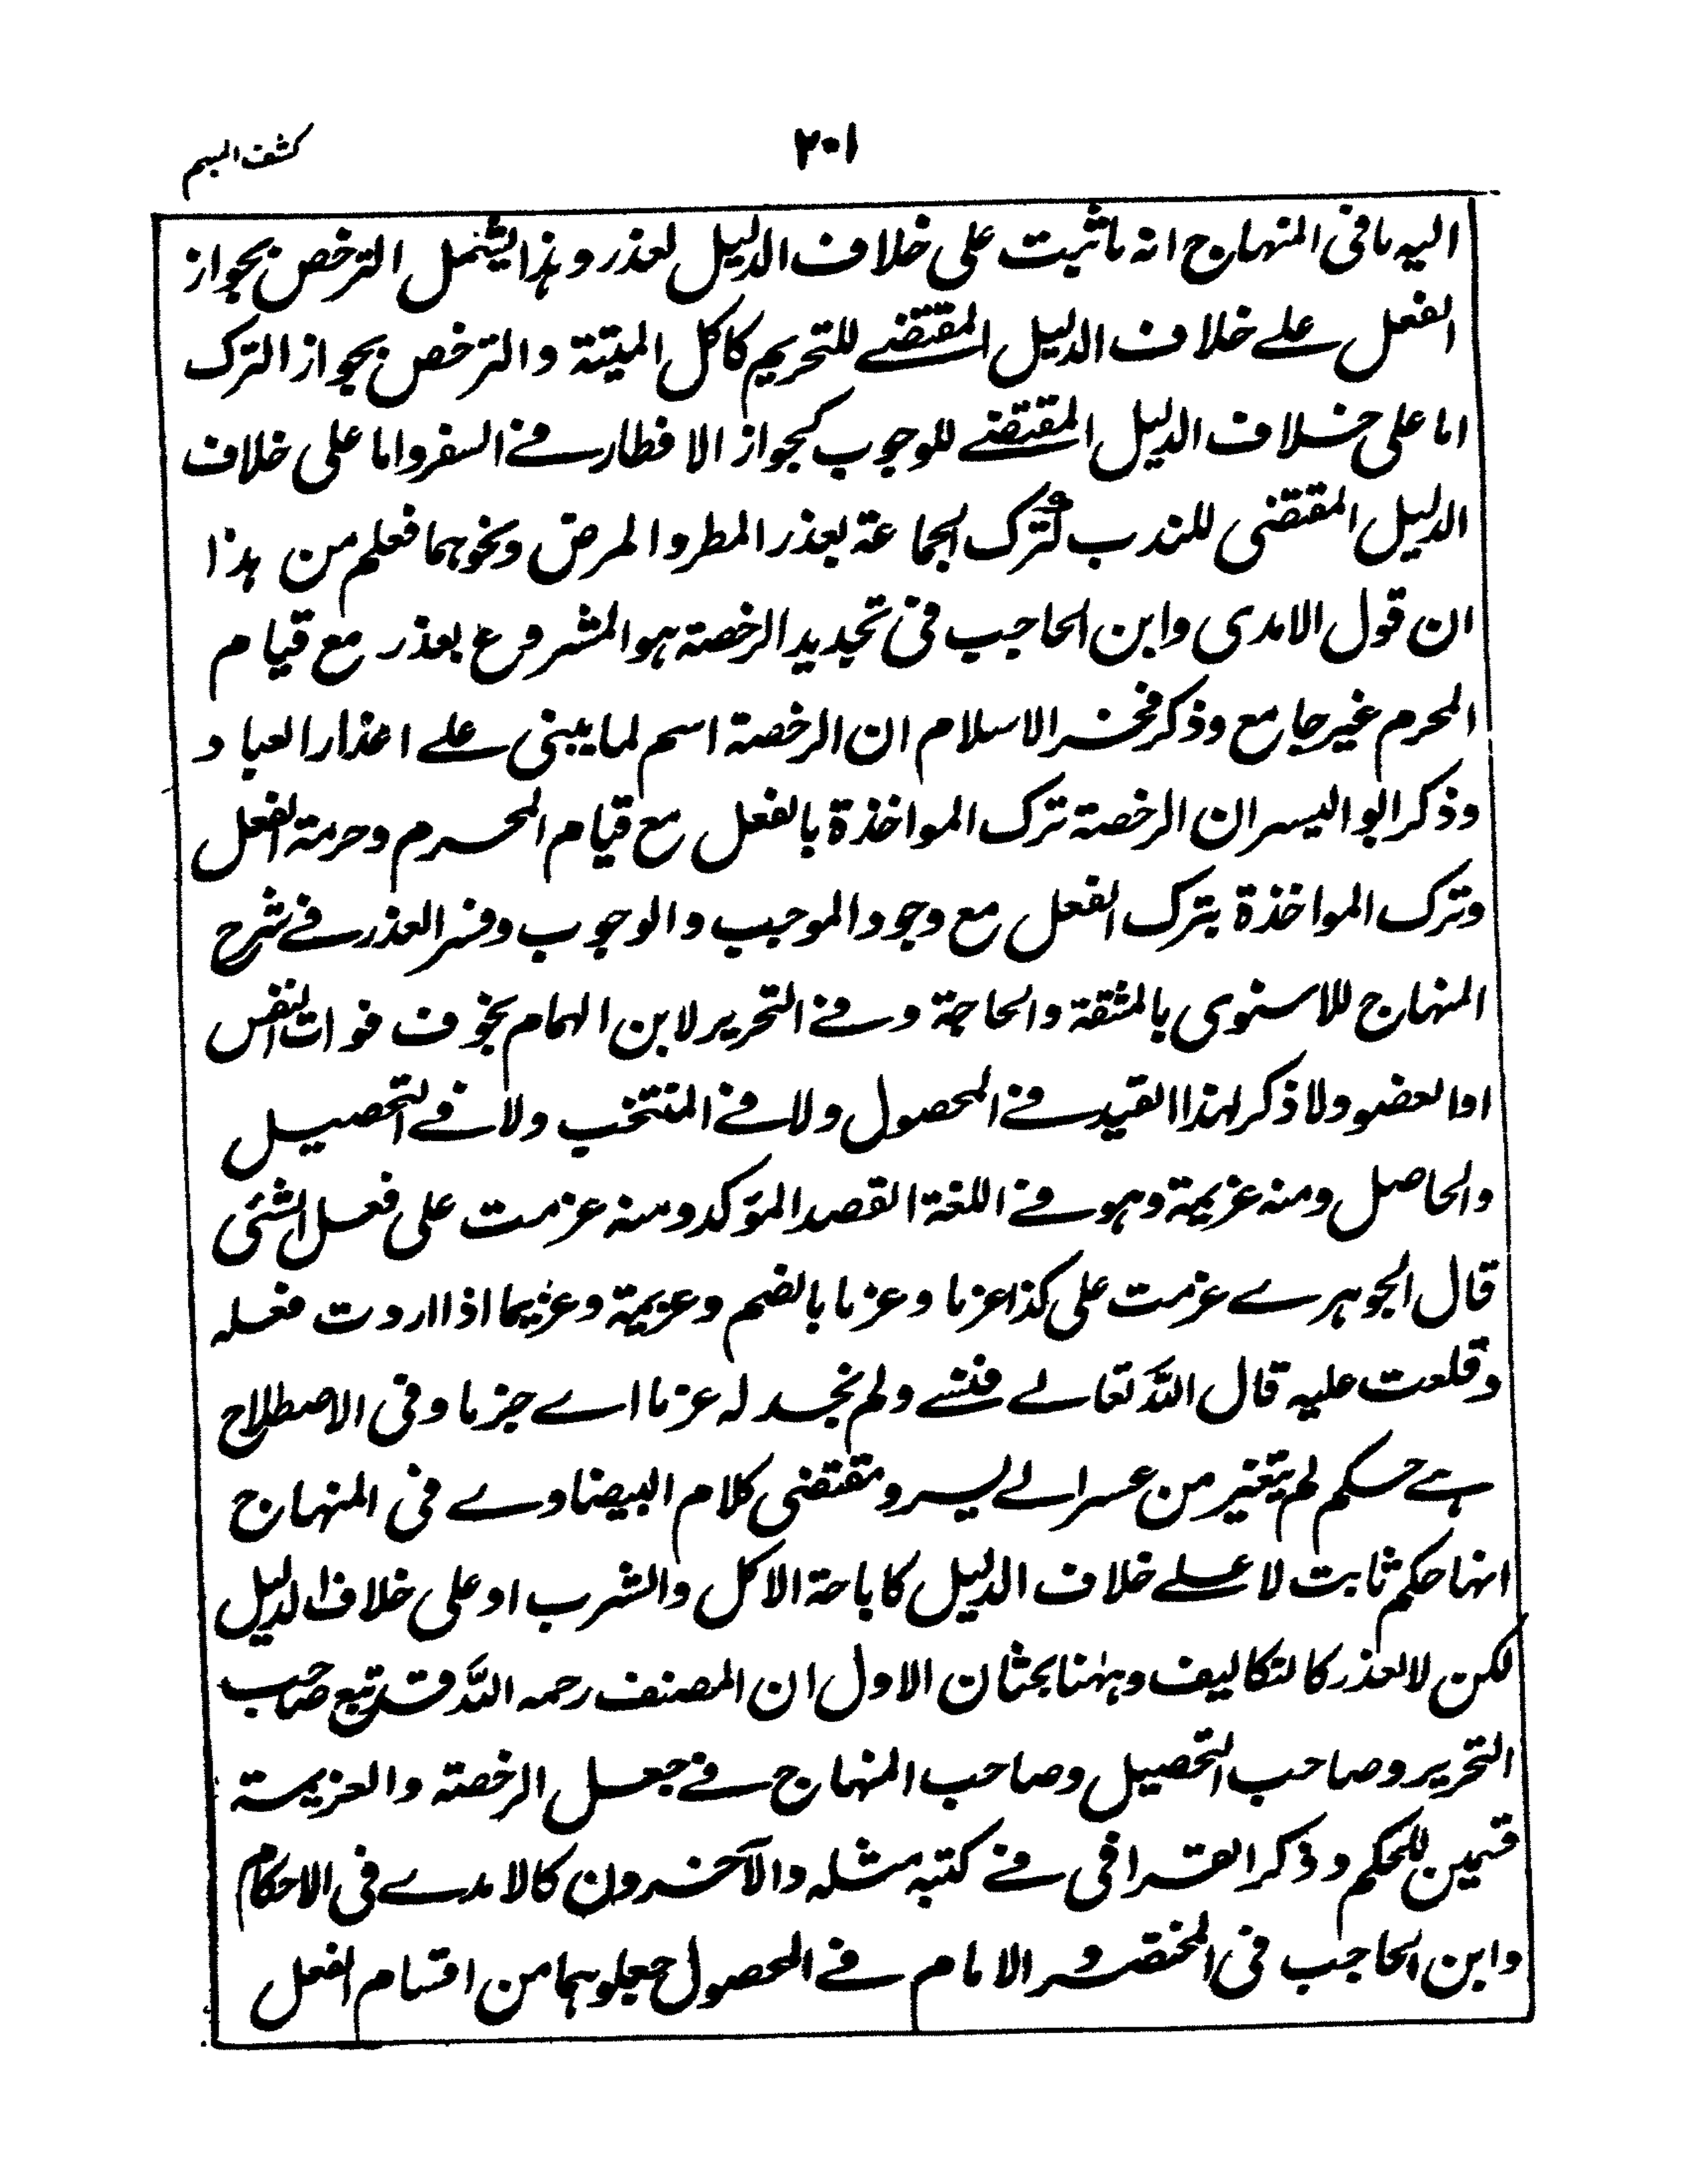 كشف المبهم
٢٠١
اليه ما فى المنهاج انه ما ثبت على خلاف الدليل لعذر وهذا يشمل الترخص بجواز
الفعل على خلاف الدليل المقتضى للتحريم كاكل الميتة والترخص بجواز الترك
اما على خلاف الدليل المقتضى للوجوب كجواز الافطار فى السفر واما على خلاف
الدليل المقتضى للندب كترك الجماعة بعذر المطر والمرض ونحوهما فعلم من هذا
ان قول الامدى وابن الحاجب فى تحديد الرخصة هو المشروع بعذر مع قيام
المحرم غير جامع وذكر فخر الاسلام ان الرخصة اسم لما يبنى على اعذار العباد
وذكر ابو اليسر ان الرخصة ترك المواخذة بالفعل مع قيام المحرم وحرمة الفعل
وترك المواخذة بترك الفعل مع وجود الموجب والوجوب وفسر العذر فى شرح
المنهاج للاسنوى بالمشقة والحاجة وفى التحرير لابن الهمام بخوف فوات النفس
او العضو ولا ذكر لهذا القيد فى المحصول ولا فى المنتخب ولا فى التحصيل
والحاصل ومنه عزيمة وهو فى اللغة القصد المؤكد ومنه عزمت على فعل الشئى
قال الجوهرى عزمت على كذا عزما وعزما بالضم وعزيمة وعزيما اذا اردت فعله
وقلعت عليه قال الله تعالى فنسى ولم نجد له عزما اى جزما وفى الاصطلاح
هى حكم لم يتغير من عسر الى يسر ومقتضى كلام البيضاوى فى المنهاج
انها حكم ثابت لا على خلاف الدليل كاباحة الاكل والشرب او على خلاف الدليل
لكن لا لعذر كالتكاليف وههنا بحثان الاول ان المصنف رحمه الله قد تبع صاحب
التحرير وصاحب التحصيل وصاحب المنهاج فى جعل الرخصة والعزيمة
قسمين للحكم وذكر القرافى فى كتبه مثله والآخرون كالامدى فى الاحكام
وابن الحاجب فى المختصر والامام فى المحصول جعلوهما من اقسام الفعل